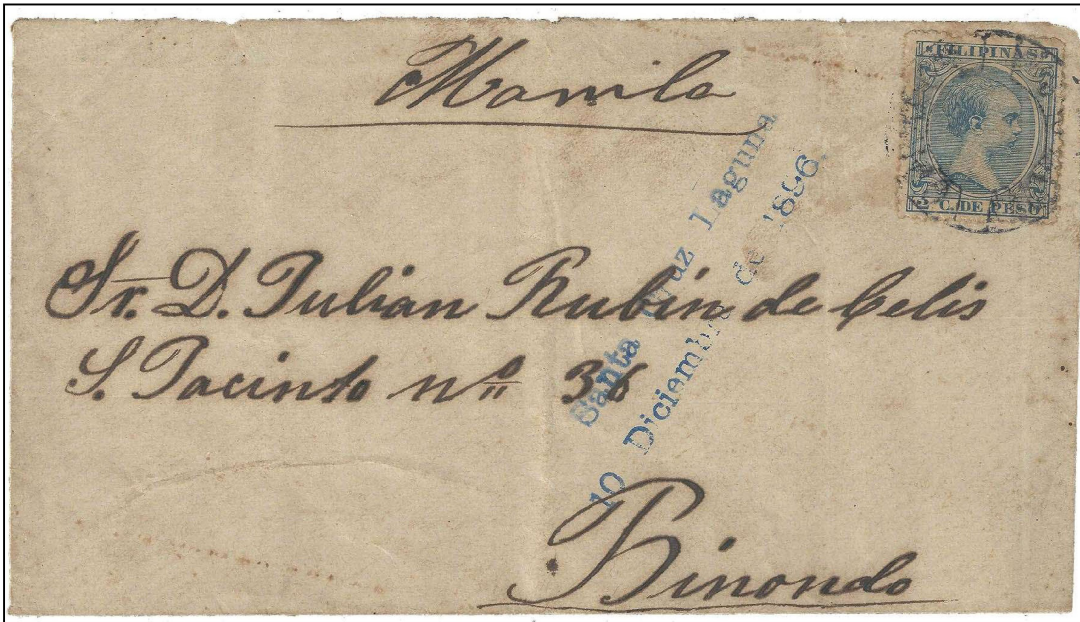 Manila
FILIPINAS
2 C. DE PESO
Santa Cruz Laguna
10 Diciembre de 1896.
Sr. D. Julian Rubin de Celis
S. Jacinto nº 36
Binondo